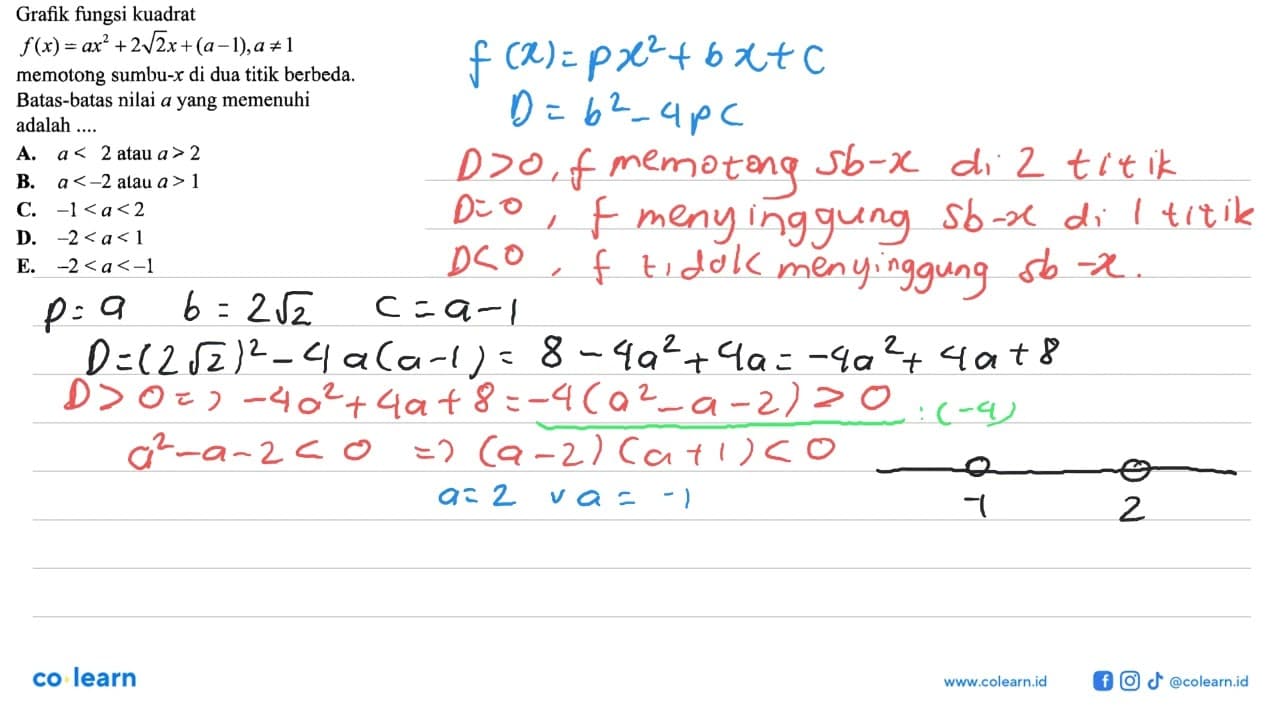 Grafik fungsi kuadrat
f(x) = ax² + 2√2x + (a − 1), a ≠ 1
memotong sumbu-x di dua titik berbeda.
Batas-batas nilai a yang memenuhi
adalah ....
A. a < 2 atau a > 2
B. a < −2 atau a > 1
C. −1 < a < 2
D. −2 < a < 1
E. −2 < a < −1
f(x) = px² + bx + c
D = b² − 4pc
D>0, f memotong sb-x di 2 titik
D=0, f menyinggung sb-x di 1 titik
D<0, f tidak menyinggung sb-x.
p = a b = 2√2 c = a − 1
D = (2√2)² − 4a(a−1) = 8 − 4a² + 4a = −4a² + 4a + 8
D > 0 => −4a² + 4a + 8 = −4(a² − a − 2) > 0 : (−4)
a² − a − 2 < 0 => (a − 2)(a + 1) < 0
a = 2 v a = −1
−1 2
co learn
www.colearn.id @colearn.id